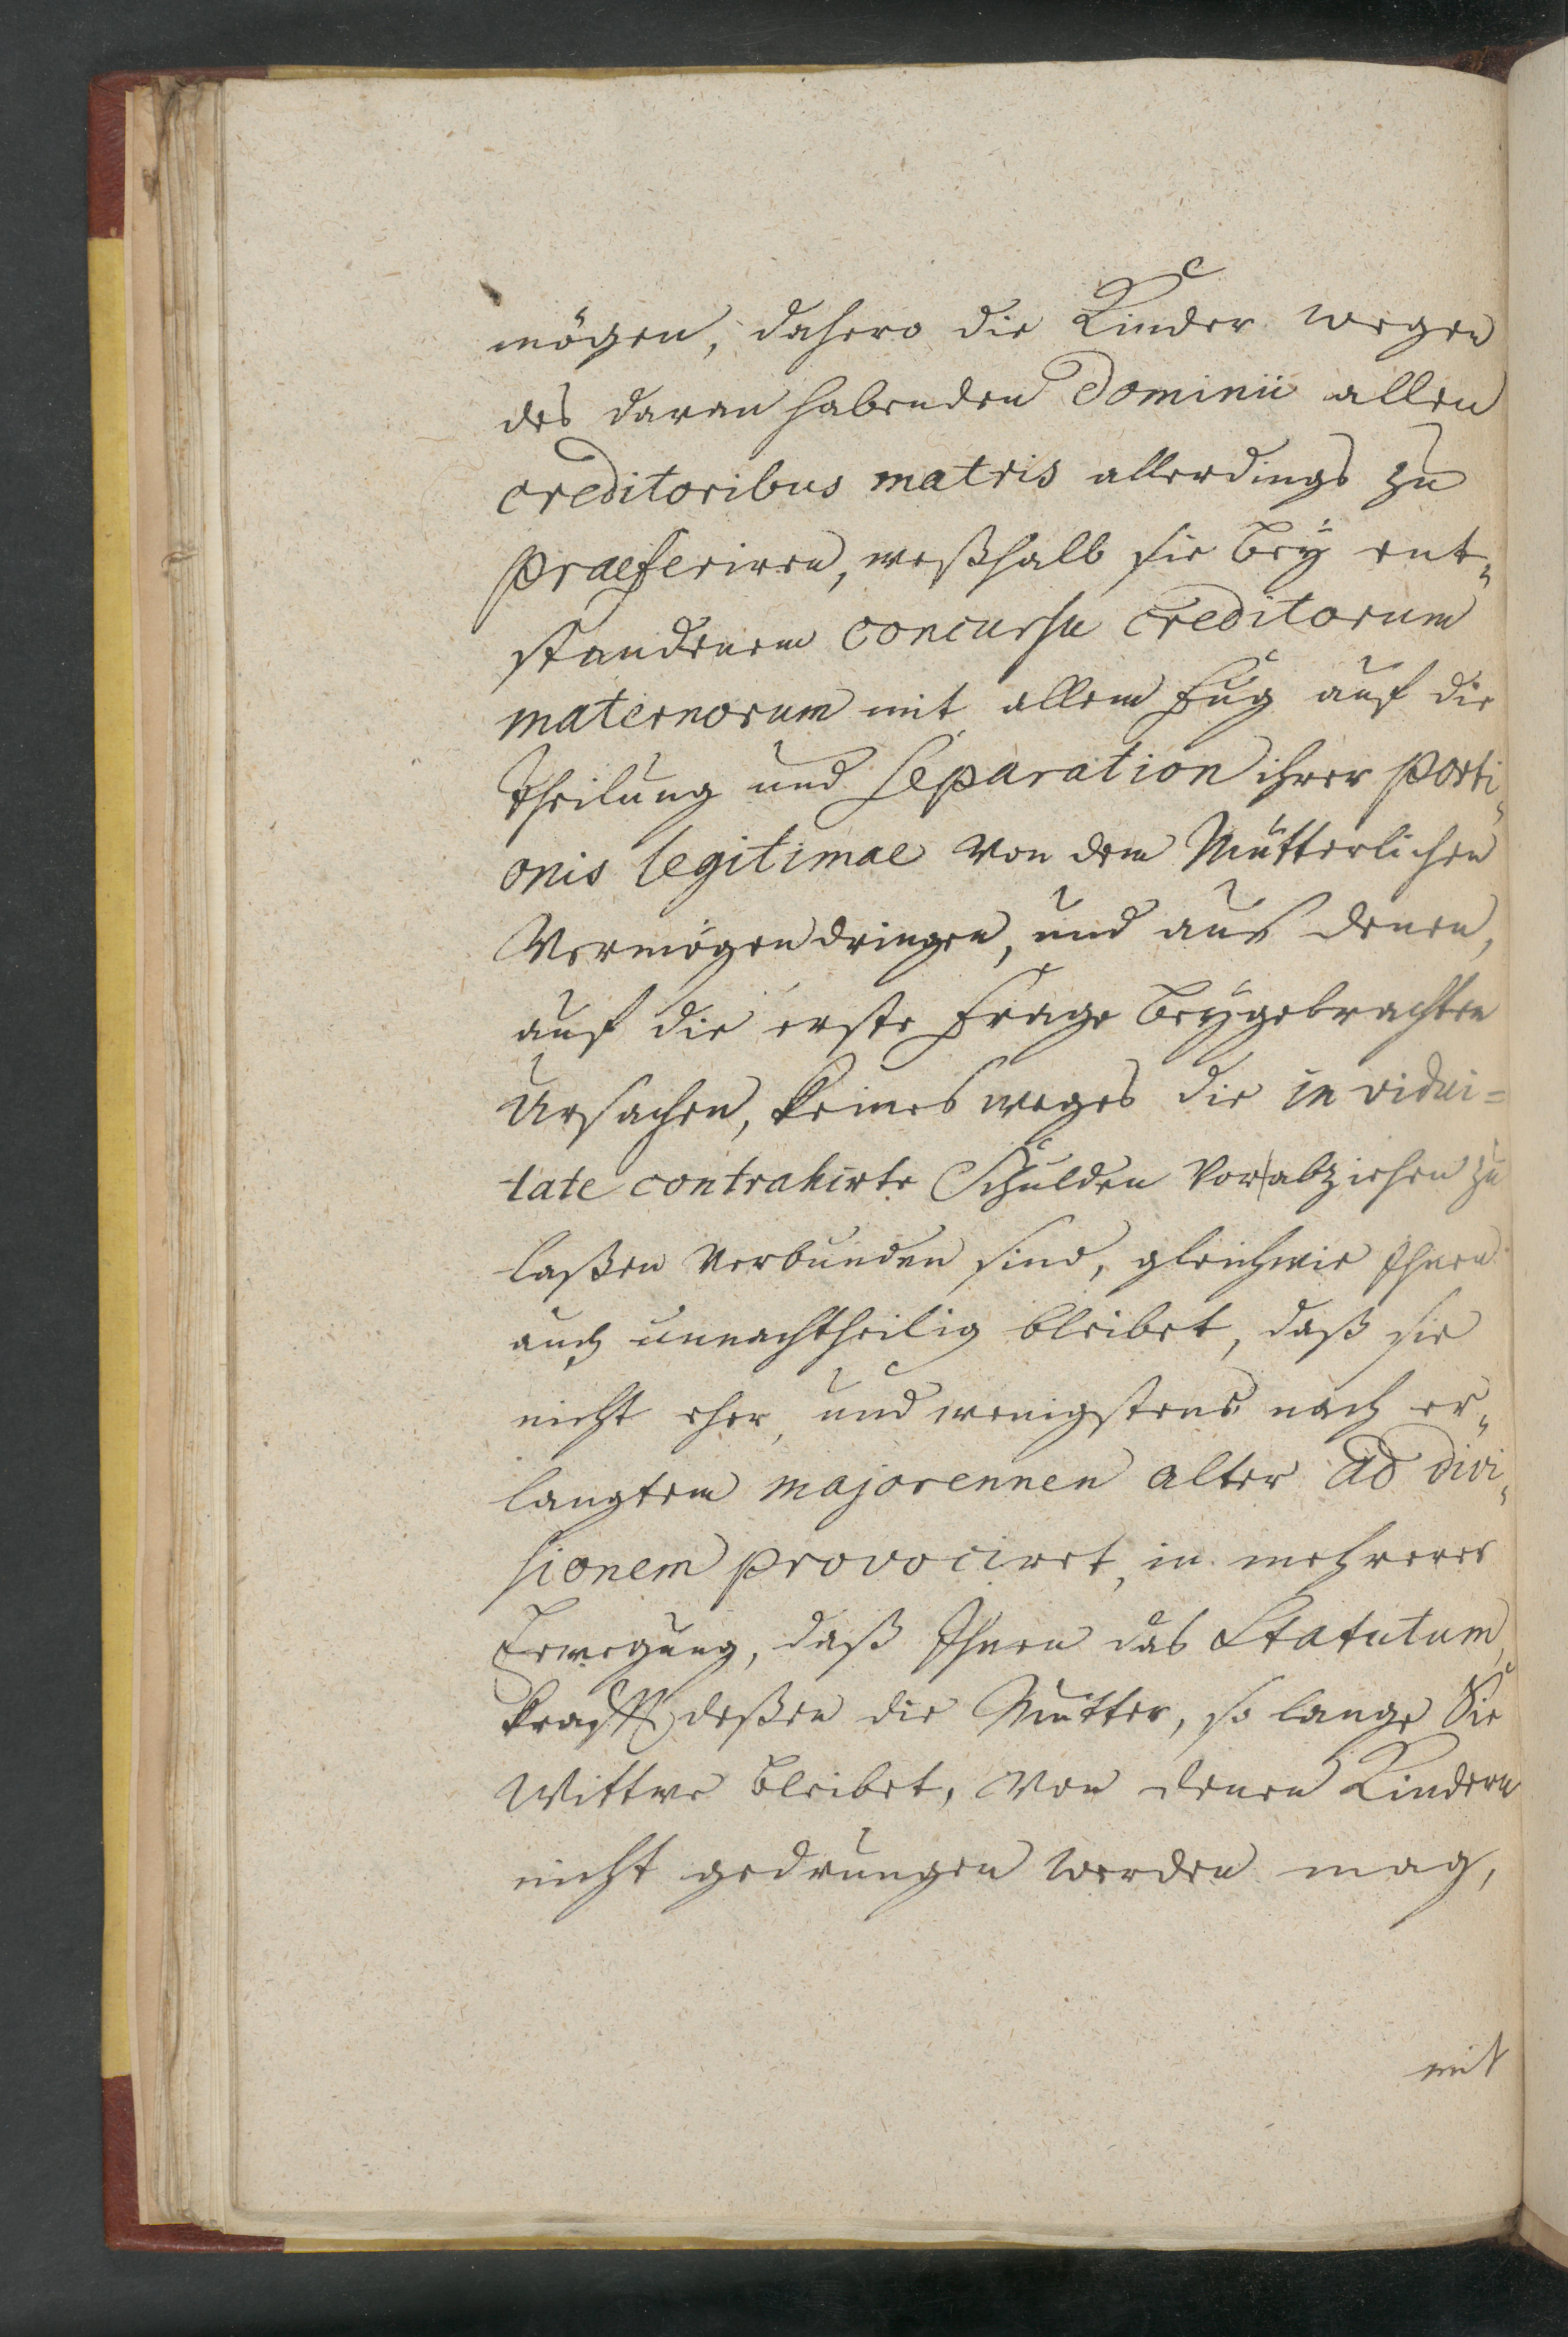 mögen, dahero die Kinder wegen
des daran habenden Dominii allen
creditoribus matris allerdings zu
praeferiren, weßhalb sie bey ent-
standenem concursu creditorum
maternorum mit allem Fug auf die
Theilung und Separation ihrer porti-
onis legitimae von dem Mütterlichen
Vermögen dringen, und aus denen,
auf die erste Frage beygebrachten
Ursachen, keines weges die in vidui=
tate contrahirte Schulden vorabziehen zu
laßen verbunden sind, gleichwie Ihnen
auch unnachtheilig bleibet, daß sie
nicht eher, und wenigstens nach er-
langtem majorennen Alter ad divi-
sionem provociret, in mehrerer
Erwegung, daß Ihnen das Statutum,
krafft deßen die Mutter, so lange Sie
Wittwe bleibet, von denen Kindern
nicht gedrungen werden mag,
mit